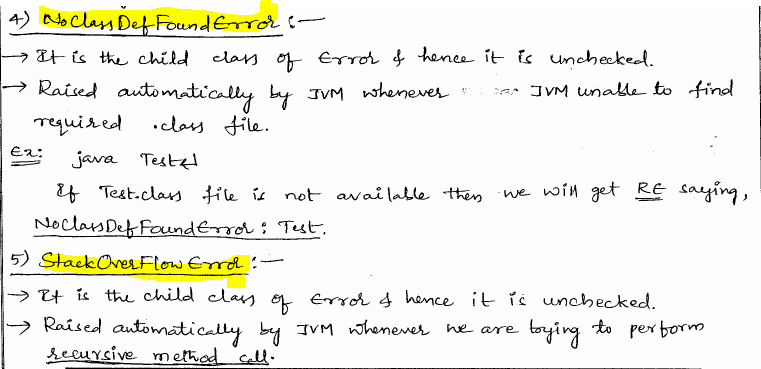 4) NoClassDefFoundError :—
→ It is the child class of Error & hence it is unchecked.
→ Raised automatically by JVM whenever JVM unable to find
required .class file.
Ex: java Test↵
If Test.class file is not available then we will get RE saying,
NoClassDefFoundError : Test.
5) StackOverFlowError :—
→ It is the child class of Error & hence it is unchecked.
→ Raised automatically by JVM whenever we are trying to perform
recursive method call.